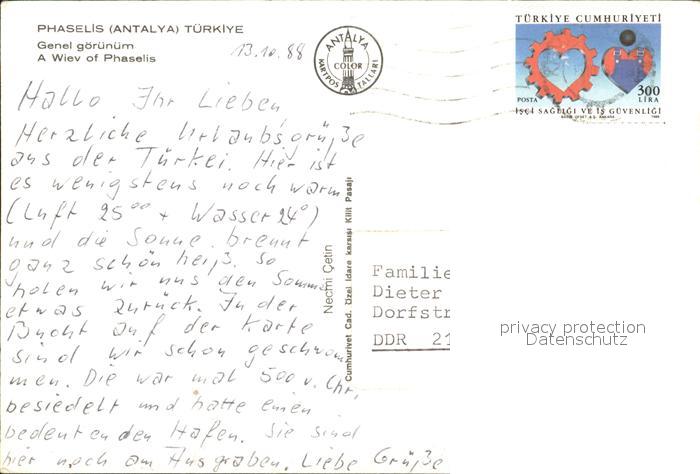 PHASELIS (ANTALYA) TÜRKİYE
Genel görünüm
A Wiev of Phaselis
13.10.88
ANTALYA
COLOR
KARTPOSTALLARI
TÜRKİYE CUMHURİYETİ
300
LİRA
POSTA
İŞÇİ SAĞLIĞI VE İŞ GÜVENLİĞİ
Hallo Ihr Lieben
Herzliche Urlaubsgrüße
aus der Türkei. Hier ist
es wenigstens noch warm
(Luft 25°° + Wasser 24°)
und die Sonne brennt
ganz schön heiß. So
holen wir uns den Sommer
etwas zurück. In der
Bucht auf der Karte
sind wir schon geschwom
men. Die war mal 500 v. Chr.
besiedelt und hatte einen
bedeutenden Hafen. Sie sind
hier noch am Ausgraben. Liebe Grüße
Necmi Çetin
Cumhuriyet Cad. Özel İdare karşısı Kilit Pasajı
Familie
Dieter
Dorfstr
DDR 21
privacy protection
Datenschutz